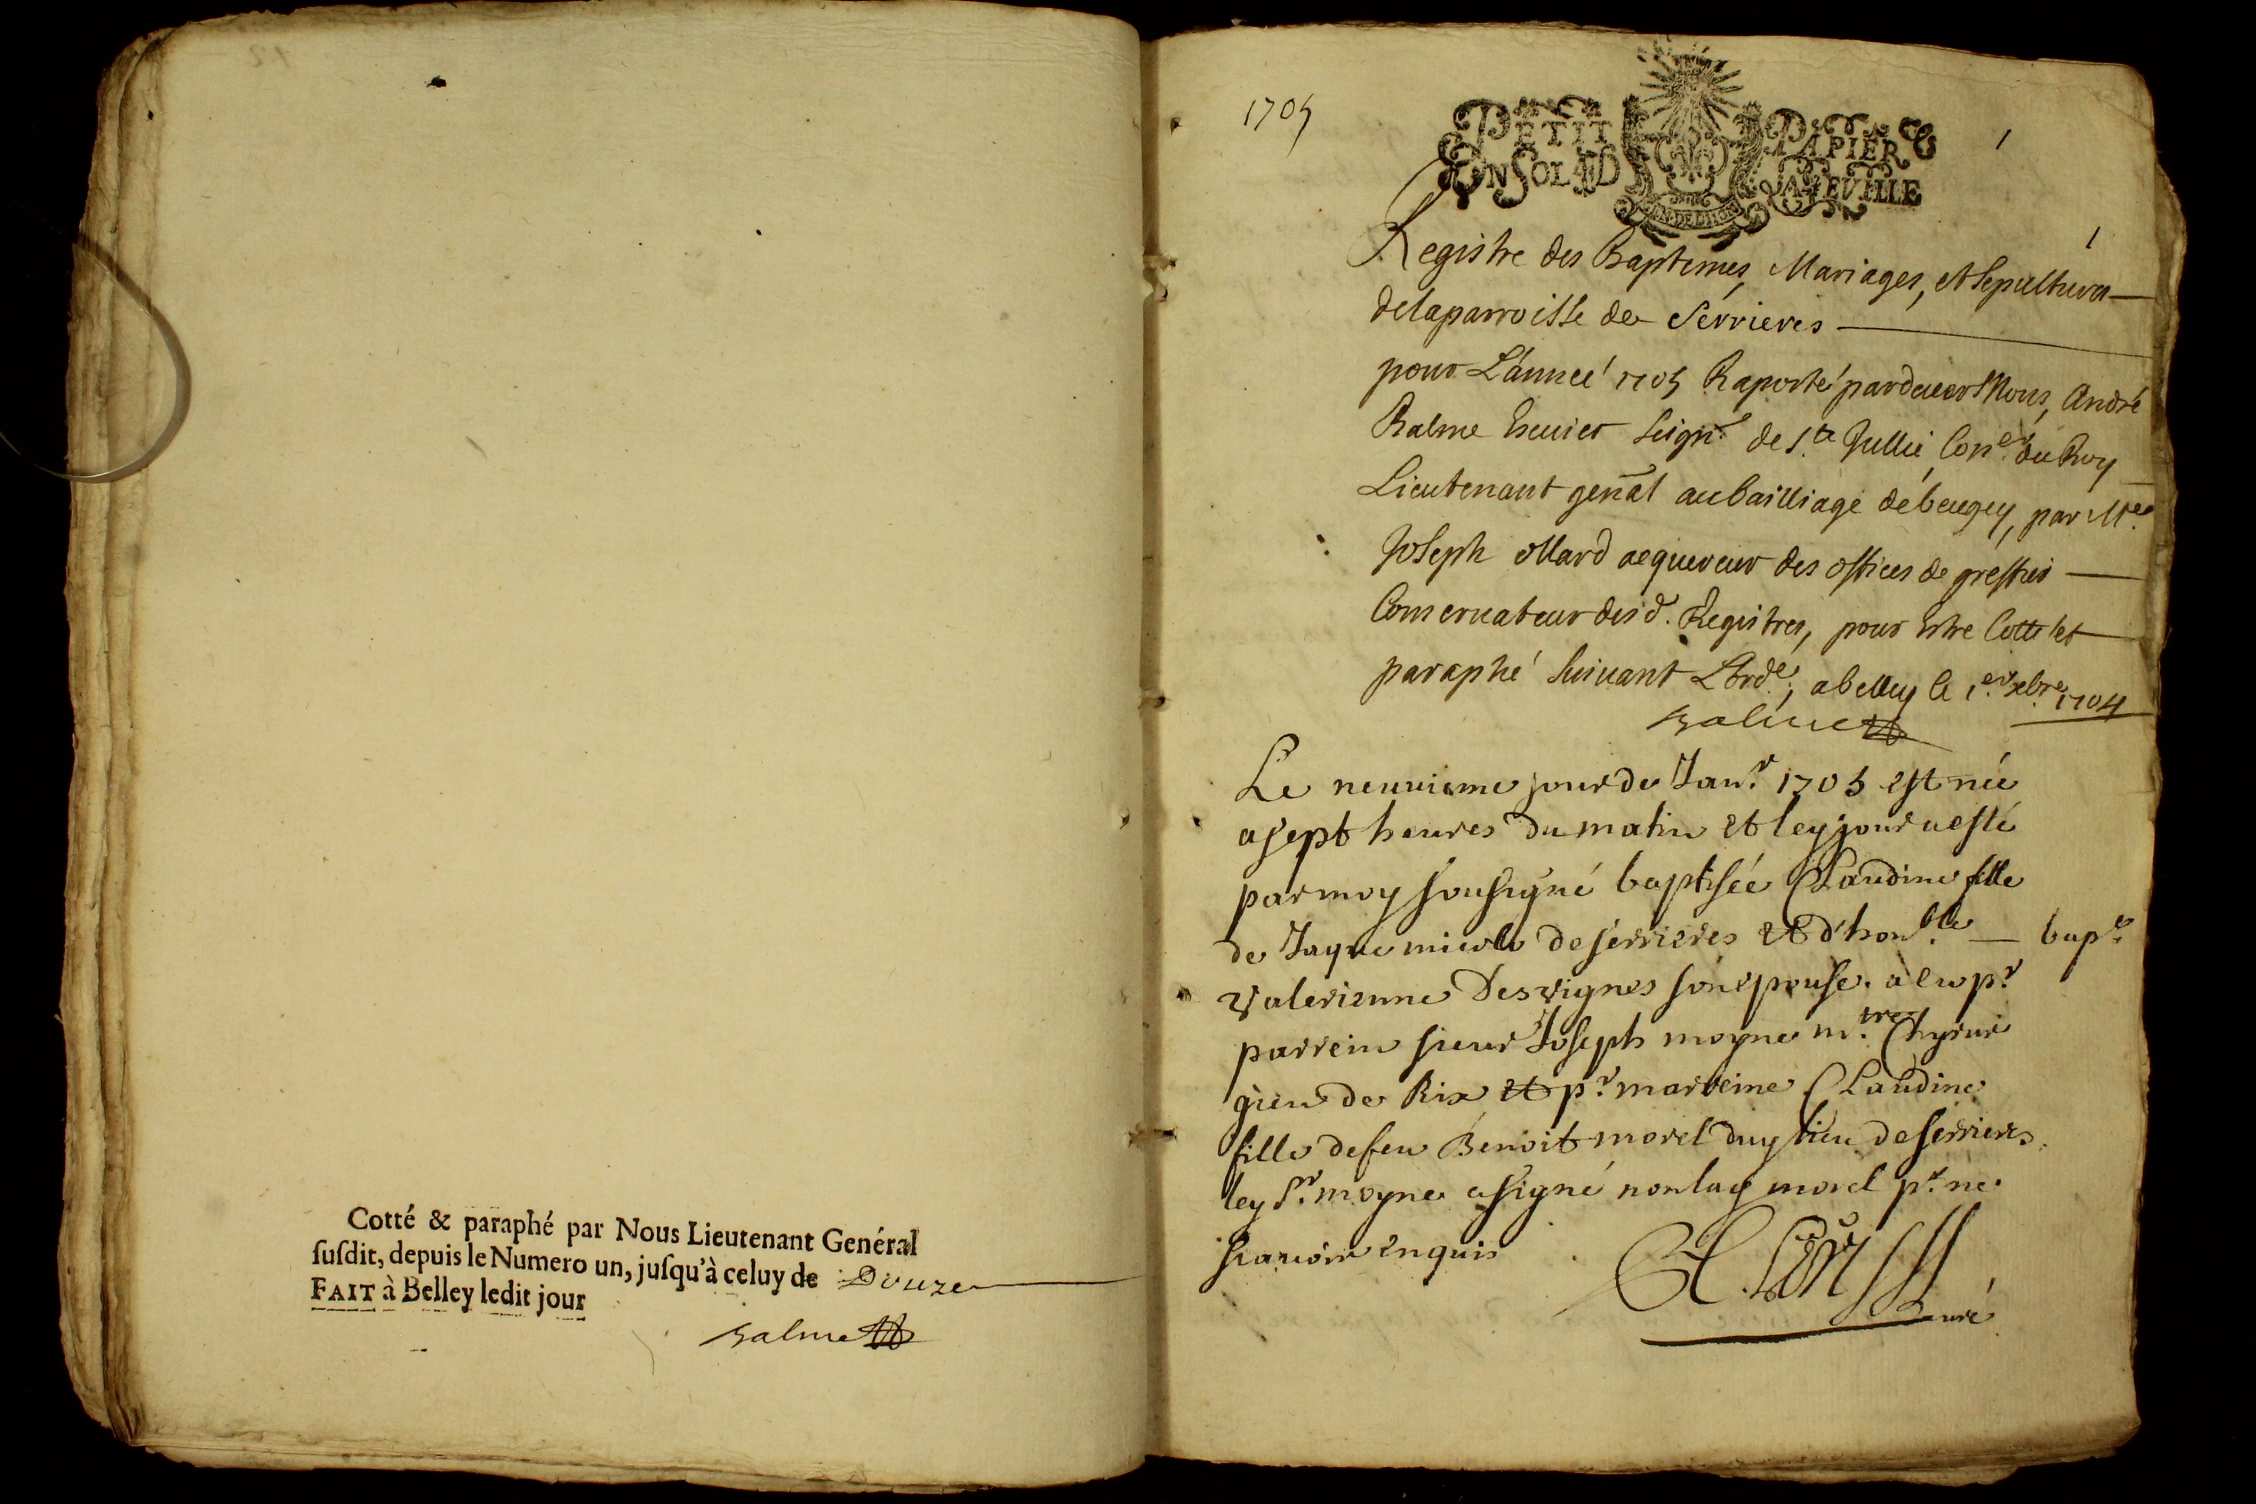 Cotté & paraphé par Nous Lieutenant Genéral
ſuſdit, depuis le Numero un, juſqu'à celuy de Douze
FAIT à Belley ledit jour
Balme
1705
1
PETIT PAPIER
UN SOL LA FEUILLE
1
Registre des Baptemes, Mariages, et Sepultures
de la parroisse de Serrieres
pour L'anneé 1705 Raporté pardevers Nous, André
Balme Escuier Seignr de Ste Jullie, Coner du Roy
Lieutenant genal au bailliage de beugey, par Me
Joseph ollard aequereur des offices de greffier
Conservateur desd. Registres, pour estre Cotté et
paraphé suivant L'orde, a belley le 1er xbre 1704
Balme
Le neuuieme jour de Janr 1705 est née
a sept heures du matin et ley jour a esté
par moy sousigné baptisée Claudine fille
de Jaque de serrieres et d'honble bape
Valerienne Desvignes son epouse. a eu pr
parrein sieur Joseph moyne mtre Chyrur
gien de Rix et pr marreine Claudine
fille de feu Benoit morel duy lieu de serrieres.
ley Sr moyne a signé non lay morel pr ne
scavoir enquis
curé